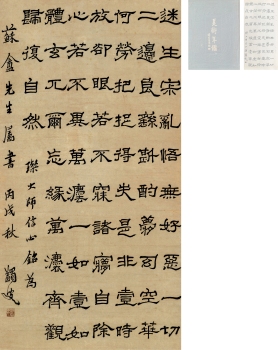 迷生寂亂悟無好惡一切
二邊良繇斟酌夢幻空華
何勞把捉得失是非壹時
放卻眼若不寐諸㝱自除
心若不異萬灋一如壹如
體玄兀爾忘緣萬灋齊觀
歸復自然
璨大師信心銘為
蘇盦先生屬書 丙戌秋 蠲叟